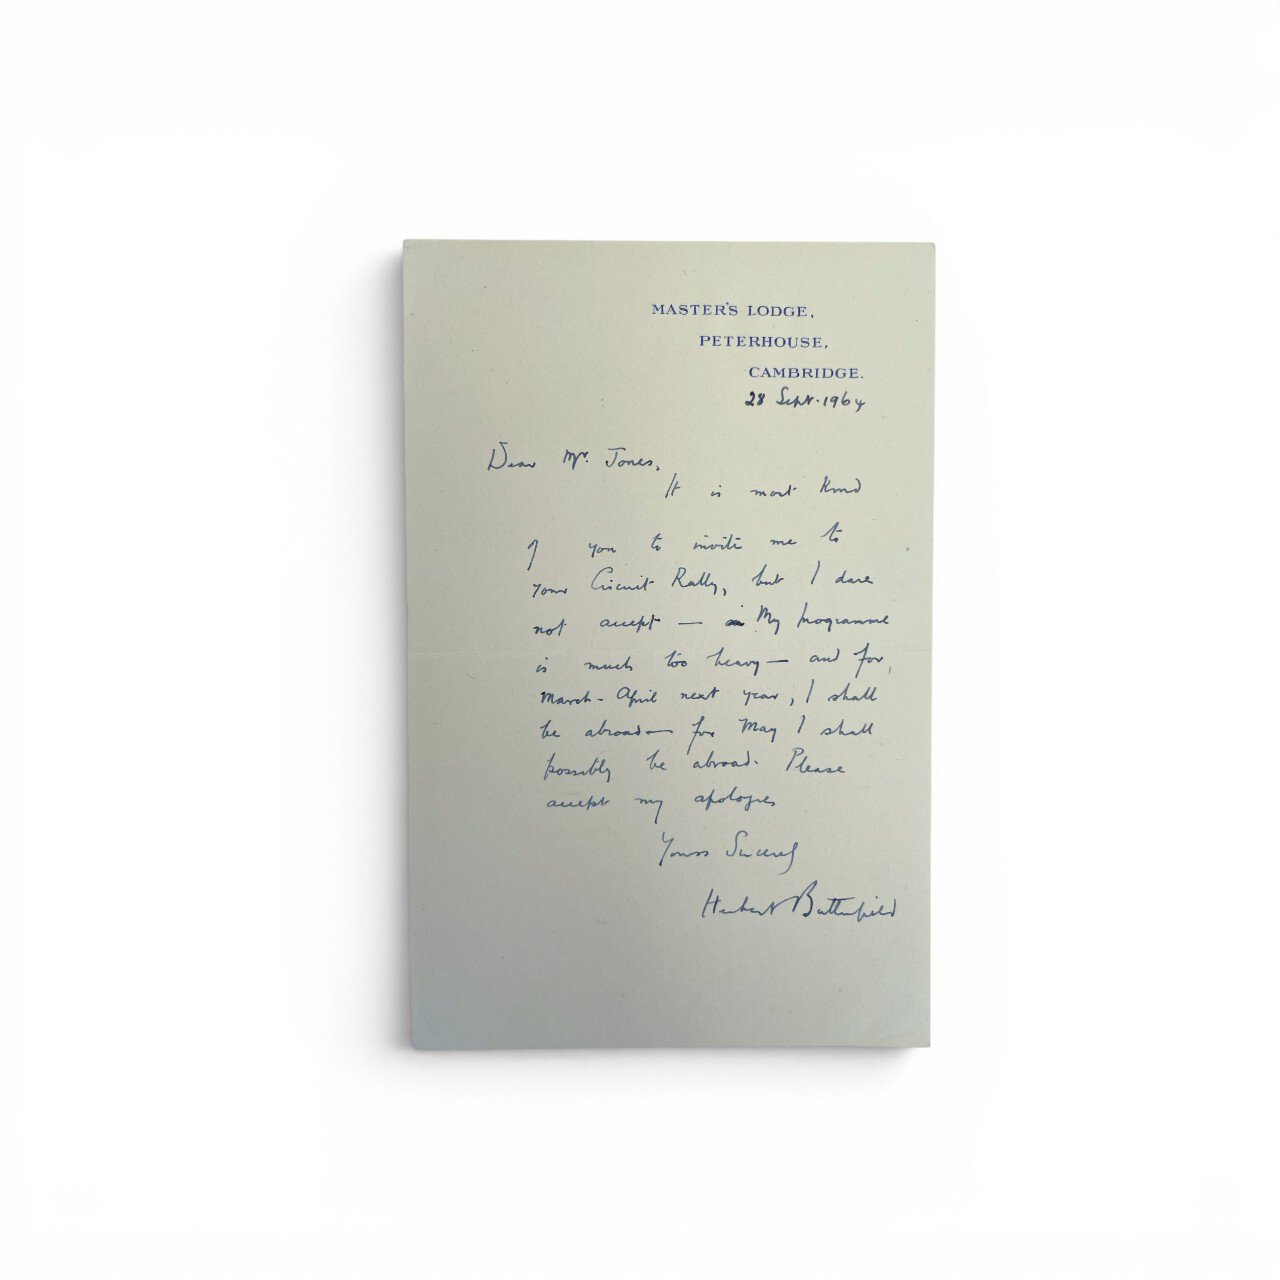 MASTER'S LODGE,
PETERHOUSE,
CAMBRIDGE.
28 Sept. 1964
Dear Mr. Jones,
It is most kind
of you to invite me to
your Circuit Rally, but I dare
not accept — My programme
is much too heavy — and for
March - April next year, I shall
be abroad — for May I shall
possibly be abroad. Please
accept my apologies
Yours Sincerely
Herbert Butterfield